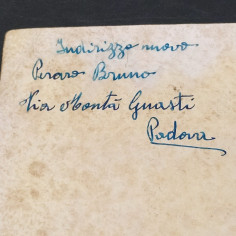 Indirizzo nuovo
Peraro Bruno
Via Montà Guasti
Padova